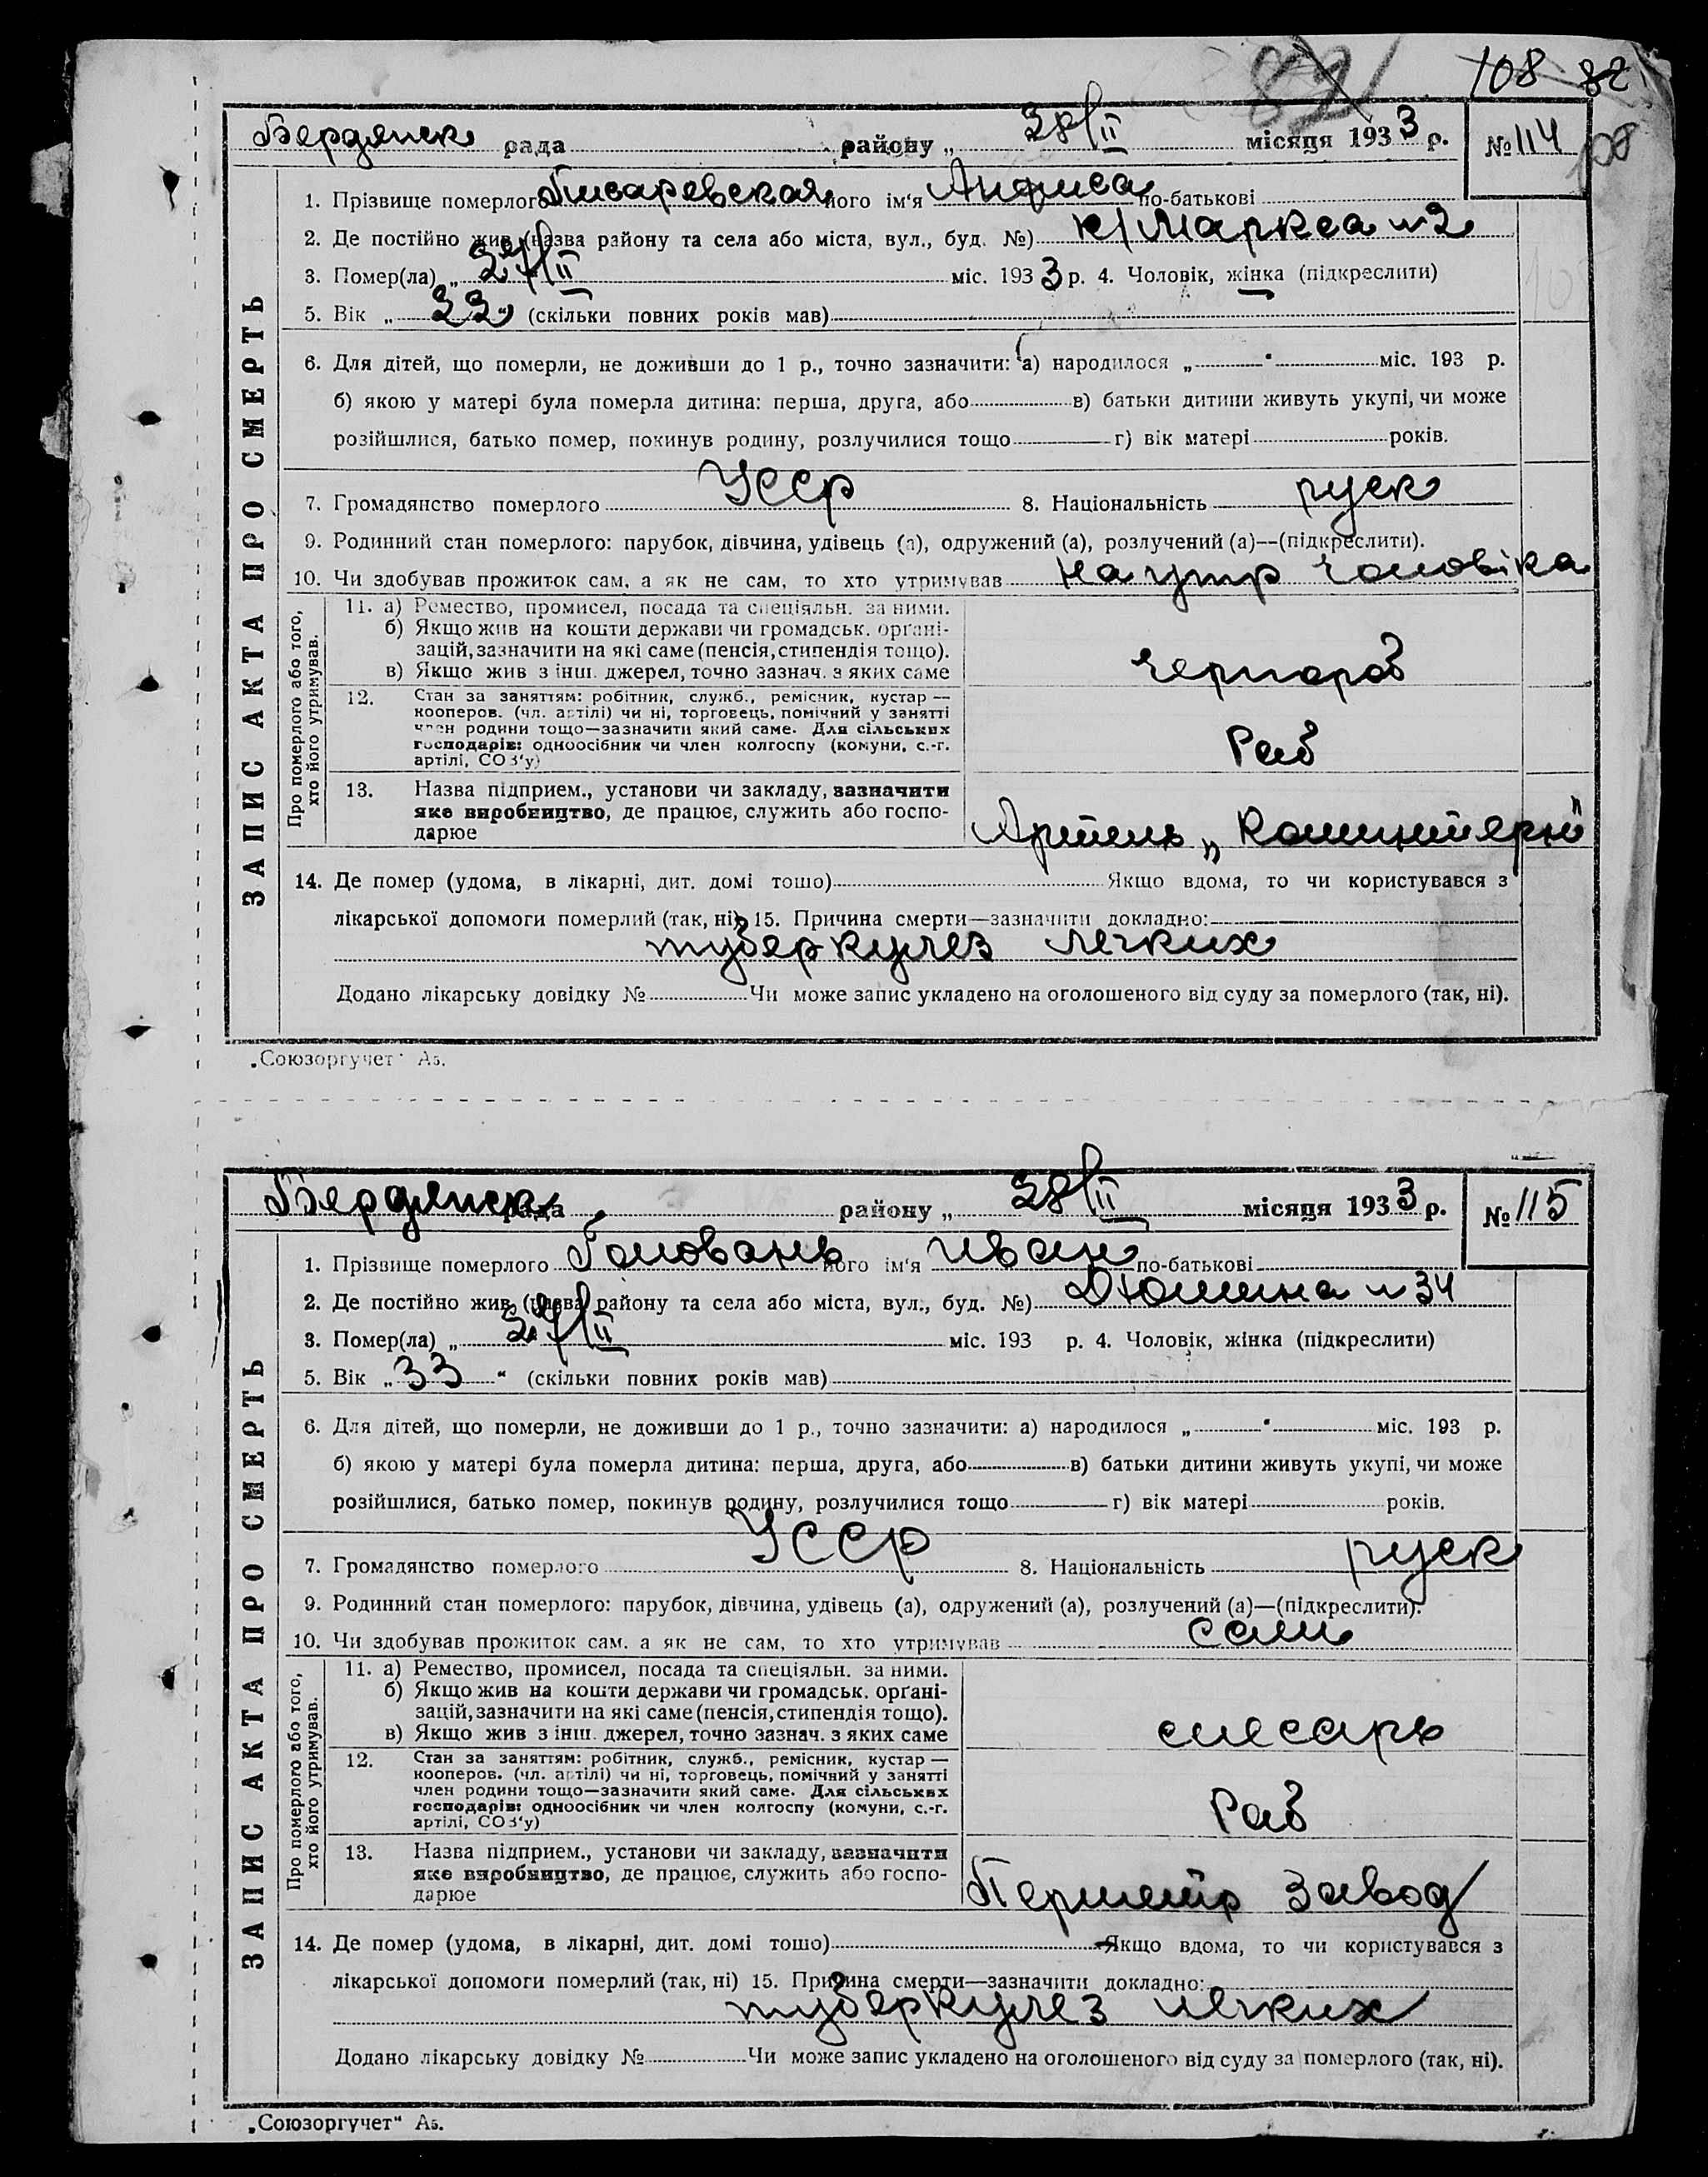 82
108 82
Бердянск рада районy „ 28/II місяця 1933 р. № 114
108
1. Прізвище померлого Писаревская його ім'я Анфиса по-батькові
2. Де постійно жив (назва району та села або міста, вул., буд. №) К/Маркса № 2
3. Помер(ла) „ 27/II міс. 1933 р. 4. Чоловік, жінка (підкреслити)
5. Вік „ 22 " (скільки повних років мав)
6. Для дітей, що померли, не доживши до 1 р., точно зазначити: а) народилося „ " міс. 193 р.
б) якою у матері була померла дитина: перша, друга, або в) батьки дитини живуть укупі, чи може
розійшлися, батько помер, покинув родину, розлучилися тощо г) вік матері років.
7. Громадянство померлого УССР 8. Національність руск
9. Родинний стан померлого: парубок, дівчина, удівець (а), одружений (а), розлучений (а)—(підкреслити).
10. Чи здобував прожиток сам, а як не сам, то хто утримував на утр чоловіка
ЗАПИС АКТА ПРО СМЕРТЬ
Про померлого або того, хто його утримував.
11. а) Ремество, промисел, посада та спеціяльн. за ними.
б) Якщо жив на кошти держави чи громадськ. орґані-
зацій, зазначити на які саме (пенсія, стипендія тощо).
в) Якщо жив з інш. джерел, точно зазнач. з яких саме
чернораб
12. Стан за заняттям: робітник, служб., ремісник, кустар —
кооперов. (чл. артілі) чи ні, торговець, помічний у занятті
член родини тощо—зазначити який саме. Для сільських
господарів: одноосібник чи член колгоспу (комуни, с.-г.
артілі, СОЗ'у)
Раб
13. Назва підприєм., установи чи закладу, зазначити
яке виробництво, де працює, служить або госпо-
дарює
Артель „Коминтерн"
14. Де помер (удома, в лікарні, дит. домі тощо) Якщо вдома, то чи користувався з
лікарської допомоги померлий (так, ні) 15. Причина смерти—зазначити докладно:
туберкулез легких
Додано лікарську довідку № Чи може запис укладено на оголошеного від суду за померлого (так, ні).
„Союзоргучет" Аз.
Бердянск рада району „ 28/II місяця 1933 р. № 115
1. Прізвище померлого Головань його ім'я Иван по-батькові
2. Де постійно жив (назва району та села або міста, вул., буд. №) Дюмина № 34
3. Помер(ла) „ 27/II міс. 193 р. 4. Чоловік, жінка (підкреслити)
5. Вік „ 33 " (скільки повних років мав)
6. Для дітей, що померли, не доживши до 1 р., точно зазначити: а) народилося „ " міс. 193 р.
б) якою у матері була померла дитина: перша, друга, або в) батьки дитини живуть укупі, чи може
розійшлися, батько помер, покинув родину, розлучилися тощо г) вік матері років.
7. Громадянство померлого УССР 8. Національність руск
9. Родинний стан померлого: парубок, дівчина, удівець (а), одружений (а), розлучений (а)—(підкреслити).
10. Чи здобував прожиток сам, а як не сам, то хто утримував сам
ЗАПИС АКТА ПРО СМЕРТЬ
Про померлого або того, хто його утримував.
11. а) Ремество, промисел, посада та спеціяльн. за ними.
б) Якщо жив на кошти держави чи громадськ. орґані-
зацій, зазначити на які саме (пенсія, стипендія тощо).
в) Якщо жив з інш. джерел, точно зазнач. з яких саме
слесарь
12. Стан за заняттям: робітник, служб., ремісник, кустар —
кооперов. (чл. артілі) чи ні, торговець, помічний у занятті
член родини тощо—зазначити який саме. Для сільських
господарів: одноосібник чи член колгоспу (комуни, с.-г.
артілі, СОЗ'у)
Раб
13. Назва підприєм., установи чи закладу, зазначити
яке виробництво, де працює, служить або госпо-
дарює
завод
14. Де помер (удома, в лікарні, дит. домі тощо) Якщо вдома, то чи користувався з
лікарської допомоги померлий (так, ні) 15. Причина смерти—зазначити докладно:
туберкулез легких
Додано лікарську довідку № Чи може запис укладено на оголошеного від суду за померлого (так, ні).
„Союзоргучет" Аз.